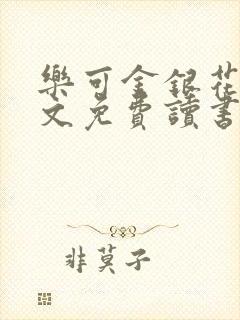 樂可金銀花
文免費讀書
非莫子